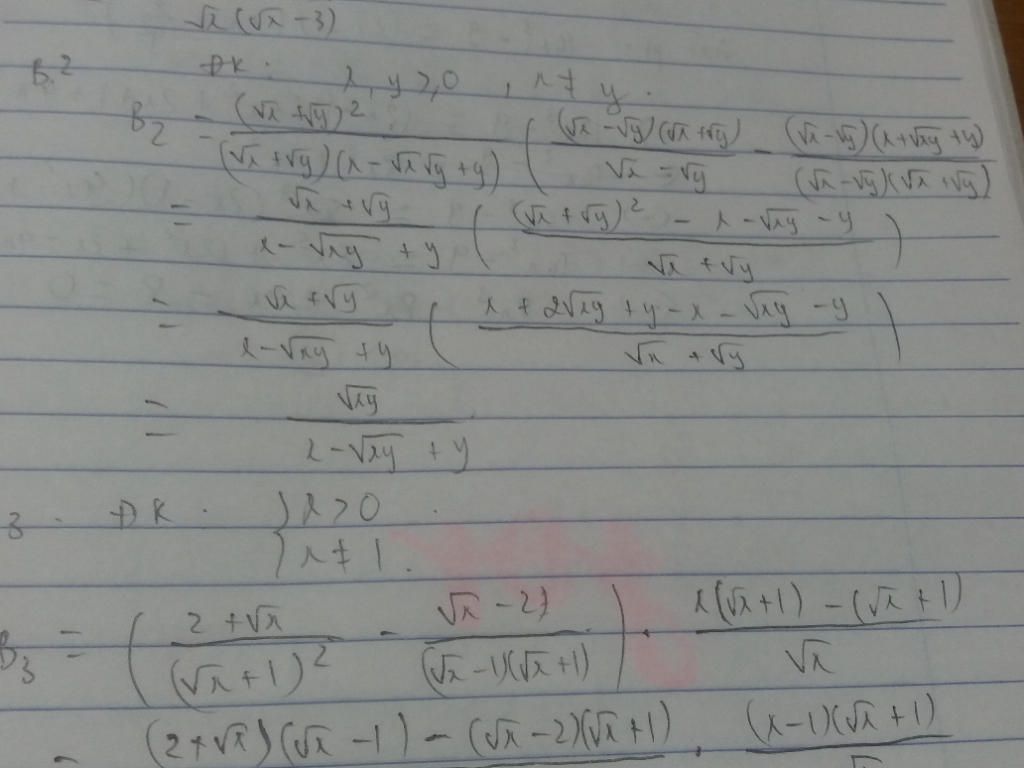 √x (√x - 3)
B.2 ĐK: x, y ≥ 0, x ≠ y.
B₂ = (√x + √y)² / ((√x + √y)(x - √x√y + y)) ( (√x - √y)(√x + √y) / (√x - √y) - (√x - √y)(x + √xy + y) / ((√x - √y)(√x + √y))
= (√x + √y) / (x - √xy + y) ( ((√x + √y)² - x - √xy - y) / (√x + √y) )
= (√x + √y) / (x - √xy + y) ( (x + 2√xy + y - x - √xy - y) / (√x + √y) )
= √xy / (x - √xy + y)
3. ĐK. { x > 0
{ x ≠ 1.
B₃ = ( (2 + √x) / (√x + 1)² - (√x - 2) / ((√x - 1)(√x + 1)) ) . (x(√x + 1) - (√x + 1)) / √x
= (2 + √x)(√x - 1) - (√x - 2)(√x + 1) . (x - 1)(√x + 1)